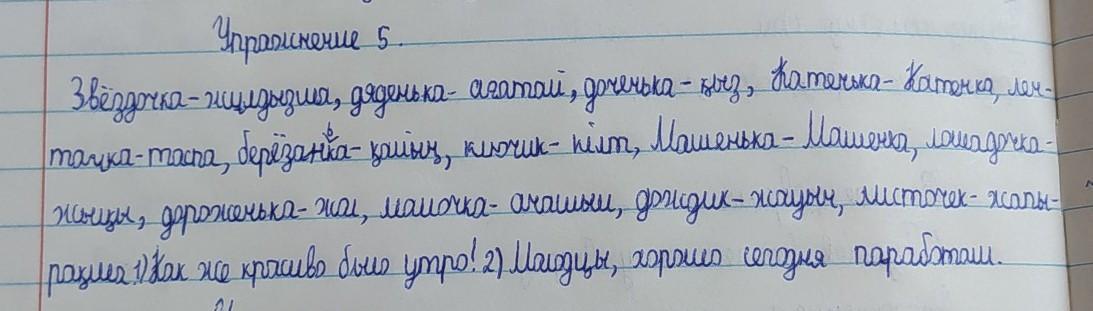 Упражнение 5.
Звёздочка-жұлдызша, дяденька-ағатай, доченька-қыз, Катенька-Катенка, лен-
точка-таспа, берёзанька-қайың, ключик-кілт, Машенька-Машенка, лошадочка-
жылқы, дороженька-жол, мамочка-анашым, дождик-жауын, листочек-жапы-
рақша. 1) Как же красиво было утро! 2) Молодцы, хорошо сегодня поработали.